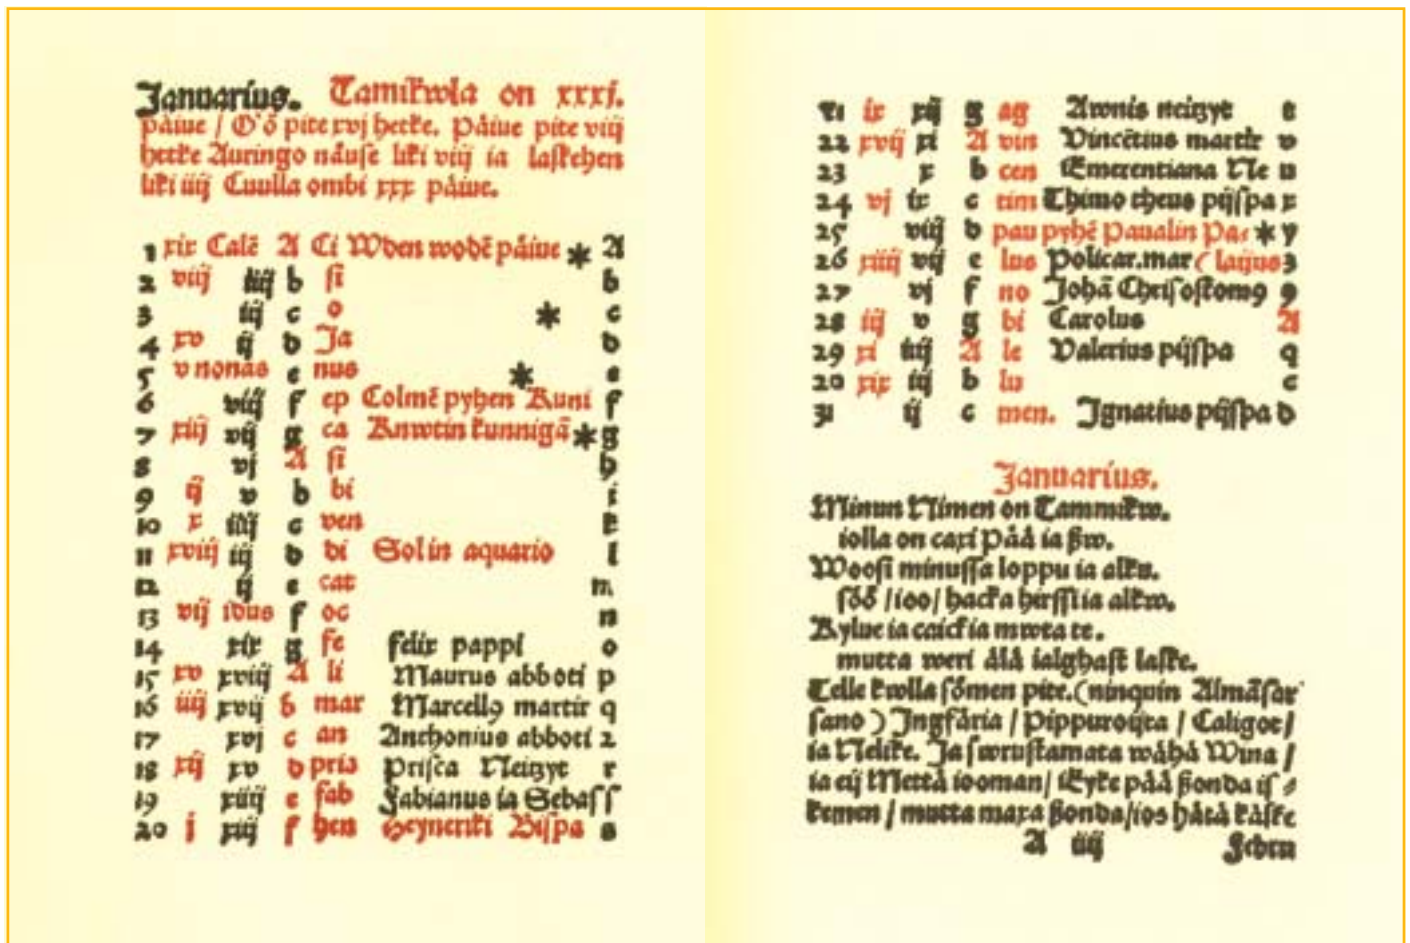 Januarius. Tamikwla on xxxj.
päiue / Ö ö pite xvj hetke. Päiue pite viij
hetke Auringo näuse liki viij ia laskehen
liki iiij Cuulla ombi xxx päiue.
1 xix Calē A Ci Wden wodē päiue * A
2 viij iiij b si b
3 iij c o * c
4 xv ij d Ja d
5 v nonas e nus * e
6 viij f ep Colmē pyhen Kuni f
7 xiij vij g ca Knwtin kunnigā * g
8 vj A si h
9 ij v b bi i
10 x iiij c ven k
11 xviij iij d di Sol in aquario l
12 ij e cat m
13 vij idus f oc n
14 xix g fe felix pappi o
15 xv xviij A li Maurus abboti p
16 iiij xvij b mar Marcell9 martir q
17 xvj c an Anthonius abboti 2
18 xij xv d pria Prisca Neitzyt r
19 xiiij e fab Fabianus ia Sebas ſ
20 j xiij f hen Heyneriki Bispa s
21 ix xij g ag Awnis neitzyt t
22 xvij xi A vin Vincētius martir v
23 x b cen Emerentiana Ne u
24 vj ix c tim Thimotheus pijspa x
25 viij d pau pyhē Paualin Pa- * y
26 xiiij vij e lus Policar.mar ( laijus 3
27 vj f no Johā Chrisostom9 9
28 iij v g bi Carolus A
29 xi iiij A le Valerius pijspa q
20 xix iij b lu c
31 ij c men. Ignatius pijspa d
Januarius.
Minun Nimen on Tammikw.
iolla on caxi Pää ia sw.
Woosi minussa loppu ia alku.
söö / ioo / hacka hirssi ia alkw.
Kylue ia caickia mwta te.
mutta weri älä ialghast laske.
Telle kwlla sömen pite. (ninquin Almāsar
sano ) Ingfäria / Pippuroijta / Caligot /
ia Nelike. Ja swrustamata wähä Wina /
ia eij Mettä iooman / Eyke pää honda is-
kemen / mutta maxa honda / ios hätä käske
A iiij Febru